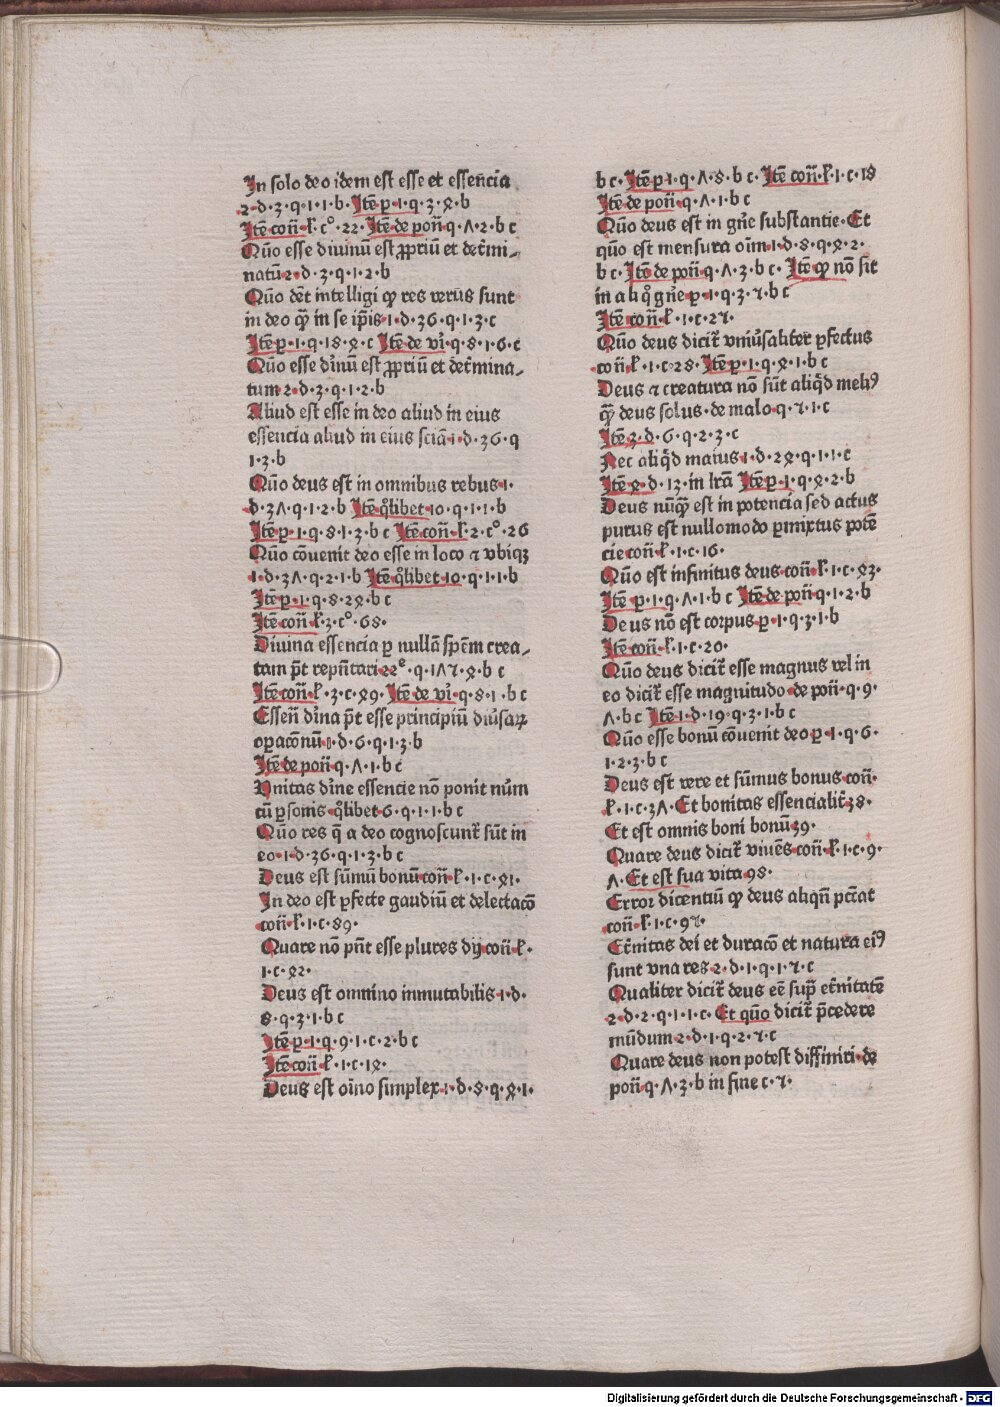 In solo deo idem est esse et essen̄cia
2·d·3·q·1·1·b· Itē p·1·q·3·ꝝ·b
Itē con̄·ł·c°·22· Itē de pon̄ q·ʌ·2·b c
Quō esse diuinū est ꝓpriū et det̄mi-
natū 2·d·3·q·1·2·b
Quō dēt intelligi ꝙ res verius sunt
in deo ꝙ̄ in se ip̄is·1·d·36·q·1·3·c
Itē p·1·q·18·ꝝ·c Itē de vī·q·8·1·6·c
Quō esse dīnū est ꝓpriū et det̄mina-
tum 2·d·3·q·1·2·b
Aliud est esse in deo aliud in eius
essencia aliud in eius sciā 1·d·36·q
1·3·b
Quō deus est in omnibus rebus 1·
d·3ʌ·q·1·2·b Itē q̊libet 10·q·1·1·b
Itē p·1·q·8·1·3·b c Itē con̄·ł·2·c°·26
Quō cōuenit deo esse in loco ⁊ vbiqꝫ
1·d·3ʌ·q·2·1·b Itē q̊libet 10·q·1·1·b
Itē p·1·q·8·2ꝝ·b c
Itē con̄·ł·3·c°·68·
Diuina essencia ꝑ nullā spēm crea-
tam p̄t rep̄n̄tari 22e·q·1ʌ7·ꝝ·b c
Itē con̄·ł·3·c·ꝝ9· Itē de vī·q·8·1·b c
Essen̄ dīna p̄t esse principiū diu̇saꝝ
oꝑacōnū 1·d·6·q·1·3·b
Itē de pon̄ q·ʌ·1·b c
Vnitas dīne essencie nō ponit nūm
cū ꝑsonis q̊libet 6·q·1·1·b c
Quō res q̄ a deo cognoscunt᷑ sūt in
eo·1·d·36·q·1·3·b c
Deus est sūmū bonū con̄·ł·1·c·ꝝ1·
In deo est ꝑfecte gaudiū et delectacō
con̄·ł·1·c·89·
Quare nō pn̄t esse plures dij con̄·ł·
1·c·ꝝ2·
Deus est omnino inmutabilis·1·d·
8·q·3·1·b c
Itē p·1·q·9·1·c·2·b c
Itē con̄·ł·1·c·1ꝝ·
Deus est oīno simplex·1·d·8·q·ꝝ·1·
b c· Itē p·1·q·ʌ·8·b c· Itē con̄·ł·1·c·18
Itē de pon̄·q·ʌ·1·b c
Quō deus est in gn̄e substantie· Et
quō est mensura oīm·1·d·8·q·ꝝ·2·
b c· Itē de pon̄ q·ʌ·3·b c· Itē ꝙ nō sit
in aliq̊ gn̄e p·1·q·3·7·b c
Itē con̄·ł·1·c·27·
Quō deus dicit᷑ vniu̇saliter ꝑfectus
con̄·ł·1·c·28· Itē p·1·q·ꝝ·1·b c
Deus ⁊ creatura nō sūt aliq̄d meliꝰ
ꝙ̄ deus solus·de malo·q·7·1·c
Itē 3·d·6·q·2·3·c
Nec aliq̄d maius 1·d·2ꝝ·q·1·1·c
Itē ꝝ·d·13·in lr̄ā Itē p·1·q·ꝝ·2·b
Deus nūꝙ̄ est in potencia sed actus
purus est nullomodo ꝑmixtus potē
cie con̄·ł·1·c·16·
Quō est infinitus deus con̄·ł·1·c·ꝝ3·
Itē p·1·q·ʌ·1·b c Itē de pon̄ q·1·2·b
Deus nō est corpus p·1·q·3·1·b
Itē con̄·ł·1·c·20·
Quō deus dicit᷑ esse magnus vel in
eo dicit᷑ esse magnitudo·de pon̄·q·9·
ʌ·b c Itē 1·d·19·q·3·1·b c
Quō esse bonū cōuenit deo p·1·q·6·
1·2·3·b c
Deus est vere et sūmus bonus con̄·
ł·1·c·3ʌ· Et bonitas essencialit᷑ 38·
Et est omnis boni bonū 39·
Quare deus dicit᷑ viuēs con̄·ł·1·c·9·
ʌ· Et est sua vita 98·
Error dicentiū ꝙ deus aliqn̄ pctāt
con̄·ł·1·c·97·
Et̄nitas dei et duracō et natura eiꝰ
sunt vna res 2·d·1·q·1·7·c
Qualiter dicit᷑ deus eē sup̄ et̄nitatē
2·d·2·q·1·1·c· Et quō dicit᷑ p̄cedere
mūdum 2·d·1·q·2·7·c
Quare deus non potest diffiniri·de
pon̄ q·ʌ·3·b in fine c·7·
Digitalisierung gefördert durch die Deutsche Forschungsgemeinschaft - DFG